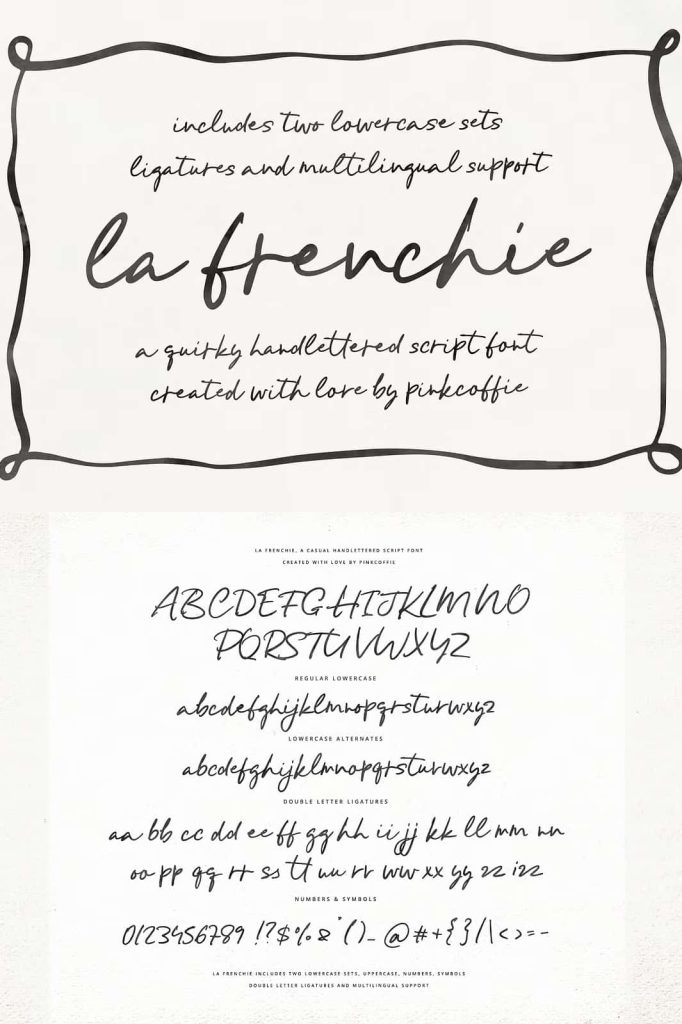 includes two lowercase sets
ligatures and multilingual support
la frenchie
a quirky handlettered script font
created with love by pinkcoffie
LA FRENCHIE, A CASUAL HANDLETTERED SCRIPT FONT
CREATED WITH LOVE BY PINKCOFFIE
ABCDEFGHIJKLMNO
PQRSTUVWXYZ
REGULAR LOWERCASE
abcdefghijklmnopqrstuvwxyz
LOWERCASE ALTERNATES
abcdefghijklmnopqrstuvwxyz
DOUBLE LETTER LIGATURES
aa bb cc dd ee ff gg hh ii jj kk ll mm nn
oo pp qq rr ss tt uu vv ww xx yy zz izz
NUMBERS & SYMBOLS
0123456789 !?$%&*()_ @#+{}/|\<>=-
LA FRENCHIE INCLUDES TWO LOWERCASE SETS, UPPERCASE, NUMBERS, SYMBOLS
DOUBLE LETTER LIGATURES AND MULTILINGUAL SUPPORT